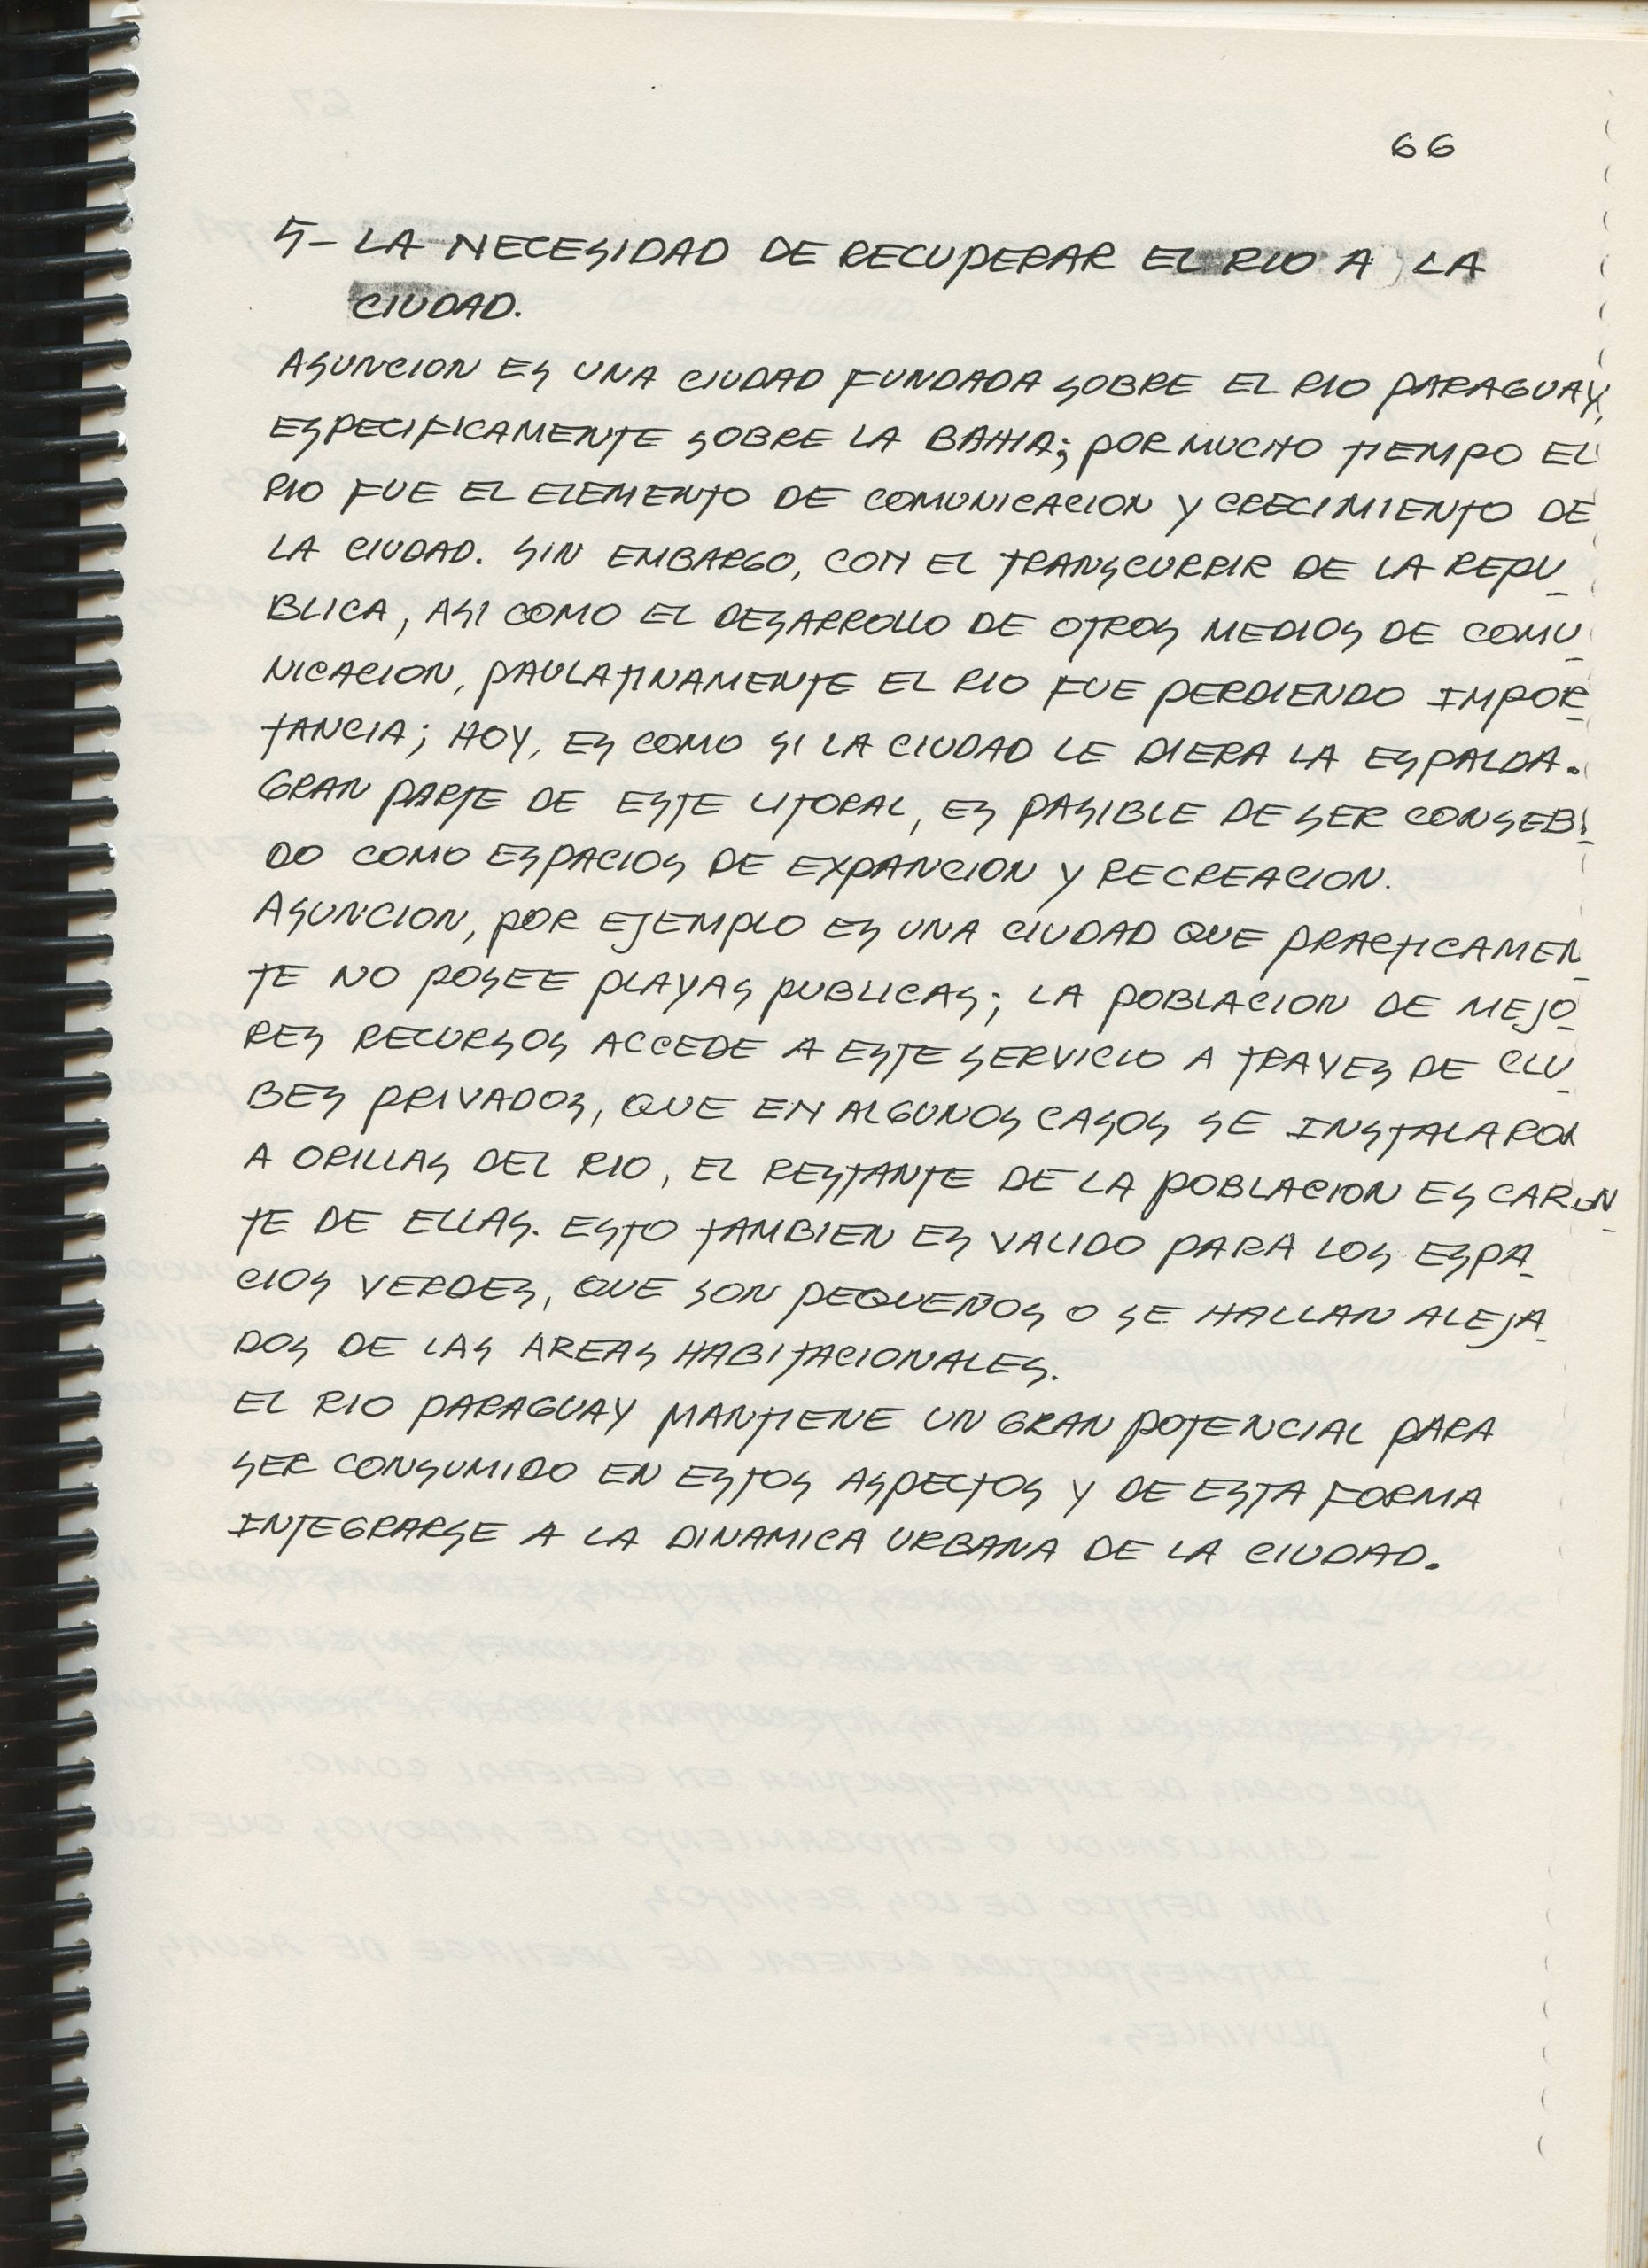 66
5- LA NECESIDAD DE RECUPERAR EL RIO A LA
CIUDAD.
ASUNCION ES UNA CIUDAD FUNDADA SOBRE EL RIO PARAGUAY,
ESPECIFICAMENTE SOBRE LA BAHIA; POR MUCHO TIEMPO EL
RIO FUE EL ELEMENTO DE COMUNICACION Y CRECIMIENTO DE
LA CIUDAD. SIN EMBARGO, CON EL TRANSCURRIR DE LA REPU-
BLICA, ASI COMO EL DESARROLLO DE OTROS MEDIOS DE COMU-
NICACION, PAULATINAMENTE EL RIO FUE PERDIENDO IMPOR-
TANCIA; HOY, ES COMO SI LA CIUDAD LE DIERA LA ESPALDA.
GRAN PARTE DE ESTE LITORAL, ES PASIBLE DE SER CONSEBI-
DO COMO ESPACIOS DE EXPANCION Y RECREACION.
ASUNCION, POR EJEMPLO ES UNA CIUDAD QUE PRACTICAMEN-
TE NO POSEE PLAYAS PUBLICAS; LA POBLACION DE MEJO-
RES RECURSOS ACCEDE A ESTE SERVICIO A TRAVES DE CLU-
BES PRIVADOS, QUE EN ALGUNOS CASOS SE INSTALARON
A ORILLAS DEL RIO, EL RESTANTE DE LA POBLACION ES CAREN-
TE DE ELLAS. ESTO TAMBIEN ES VALIDO PARA LOS ESPA-
CIOS VERDES, QUE SON PEQUEÑOS O SE HALLAN ALEJA-
DOS DE LAS AREAS HABITACIONALES.
EL RIO PARAGUAY MANTIENE UN GRAN POTENCIAL PARA
SER CONSUMIDO EN ESTOS ASPECTOS Y DE ESTA FORMA
INTEGRARSE A LA DINAMICA URBANA DE LA CIUDAD.